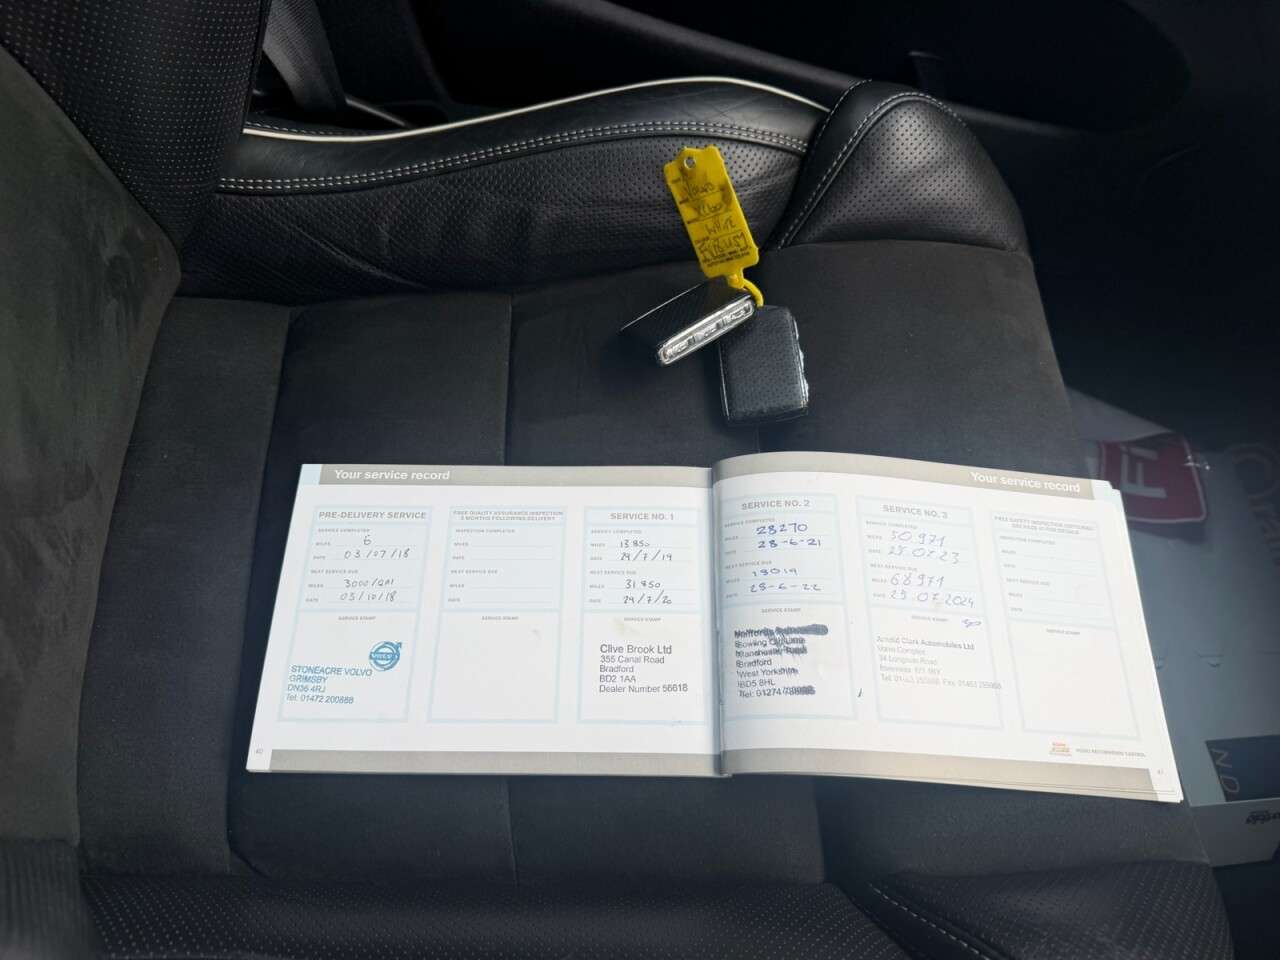 VOLVO
XC60
WHITE
Your service record
PRE-DELIVERY SERVICE
SERVICE COMPLETED
MILES 6
DATE 03/07/18
NEXT SERVICE DUE
MILES 3000/QAI
DATE 03/10/18
SERVICE STAMP
VOLVO
STONEACRE VOLVO
GRIMSBY
DN36 4RJ
Tel: 01472 200888
FREE QUALITY ASSURANCE INSPECTION
3 MONTHS FOLLOWING DELIVERY
INSPECTION COMPLETED
MILES
DATE
NEXT SERVICE DUE
MILES
DATE
SERVICE STAMP
SERVICE NO. 1
SERVICE COMPLETED
MILES 13850
DATE 29/7/19
NEXT SERVICE DUE
MILES 31850
DATE 29/7/20
SERVICE STAMP
Clive Brook Ltd
355 Canal Road
Bradford
BD2 1AA
Dealer Number 56618
40
Your service record
SERVICE NO. 2
SERVICE COMPLETED
MILES 28270
DATE 28-6-21
NEXT SERVICE DUE
MILES 18019
DATE 28-6-22
SERVICE STAMP
Bowling
Manchester Road
Bradford
West Yorkshire
BD5 8HL
Tel: 01274
SERVICE NO. 3
SERVICE COMPLETED
MILES 50.971
DATE 25.07.23
NEXT SERVICE DUE
MILES 68971
DATE 25.07.2024
SERVICE STAMP
Arnold Clark Automobiles Ltd
Volvo Complex
34 Longman Road
Inverness
FREE SAFETY INSPECTION (OPTIONAL)
INSPECTION COMPLETED
MILES
DATE
NEXT SERVICE DUE
MILES
DATE
SERVICE STAMP
41